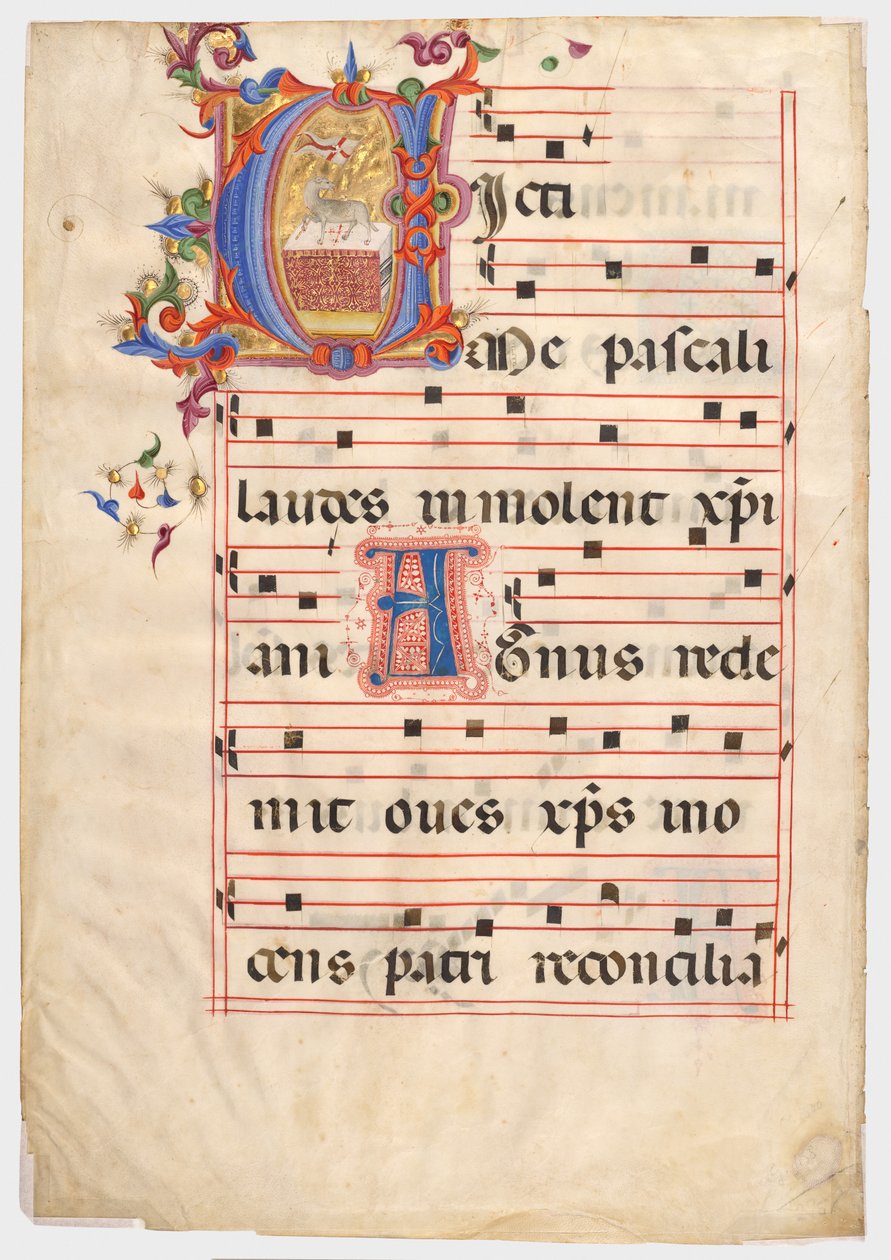 VIcti
Me paſcali
laudes inmolent xp̄i
ani AGnus rede
mit oues xp̄s ino
cens patri reconcilia